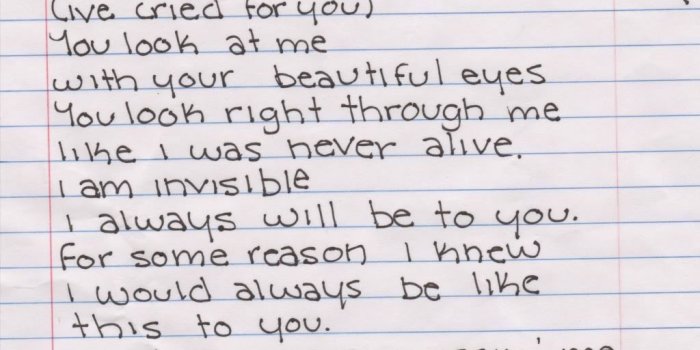 (ive cried for you)
You look at me
with your beautiful eyes
You look right through me
like i was never alive.
i am invisible
i always will be to you.
For some reason i knew
i would always be like
this to you.